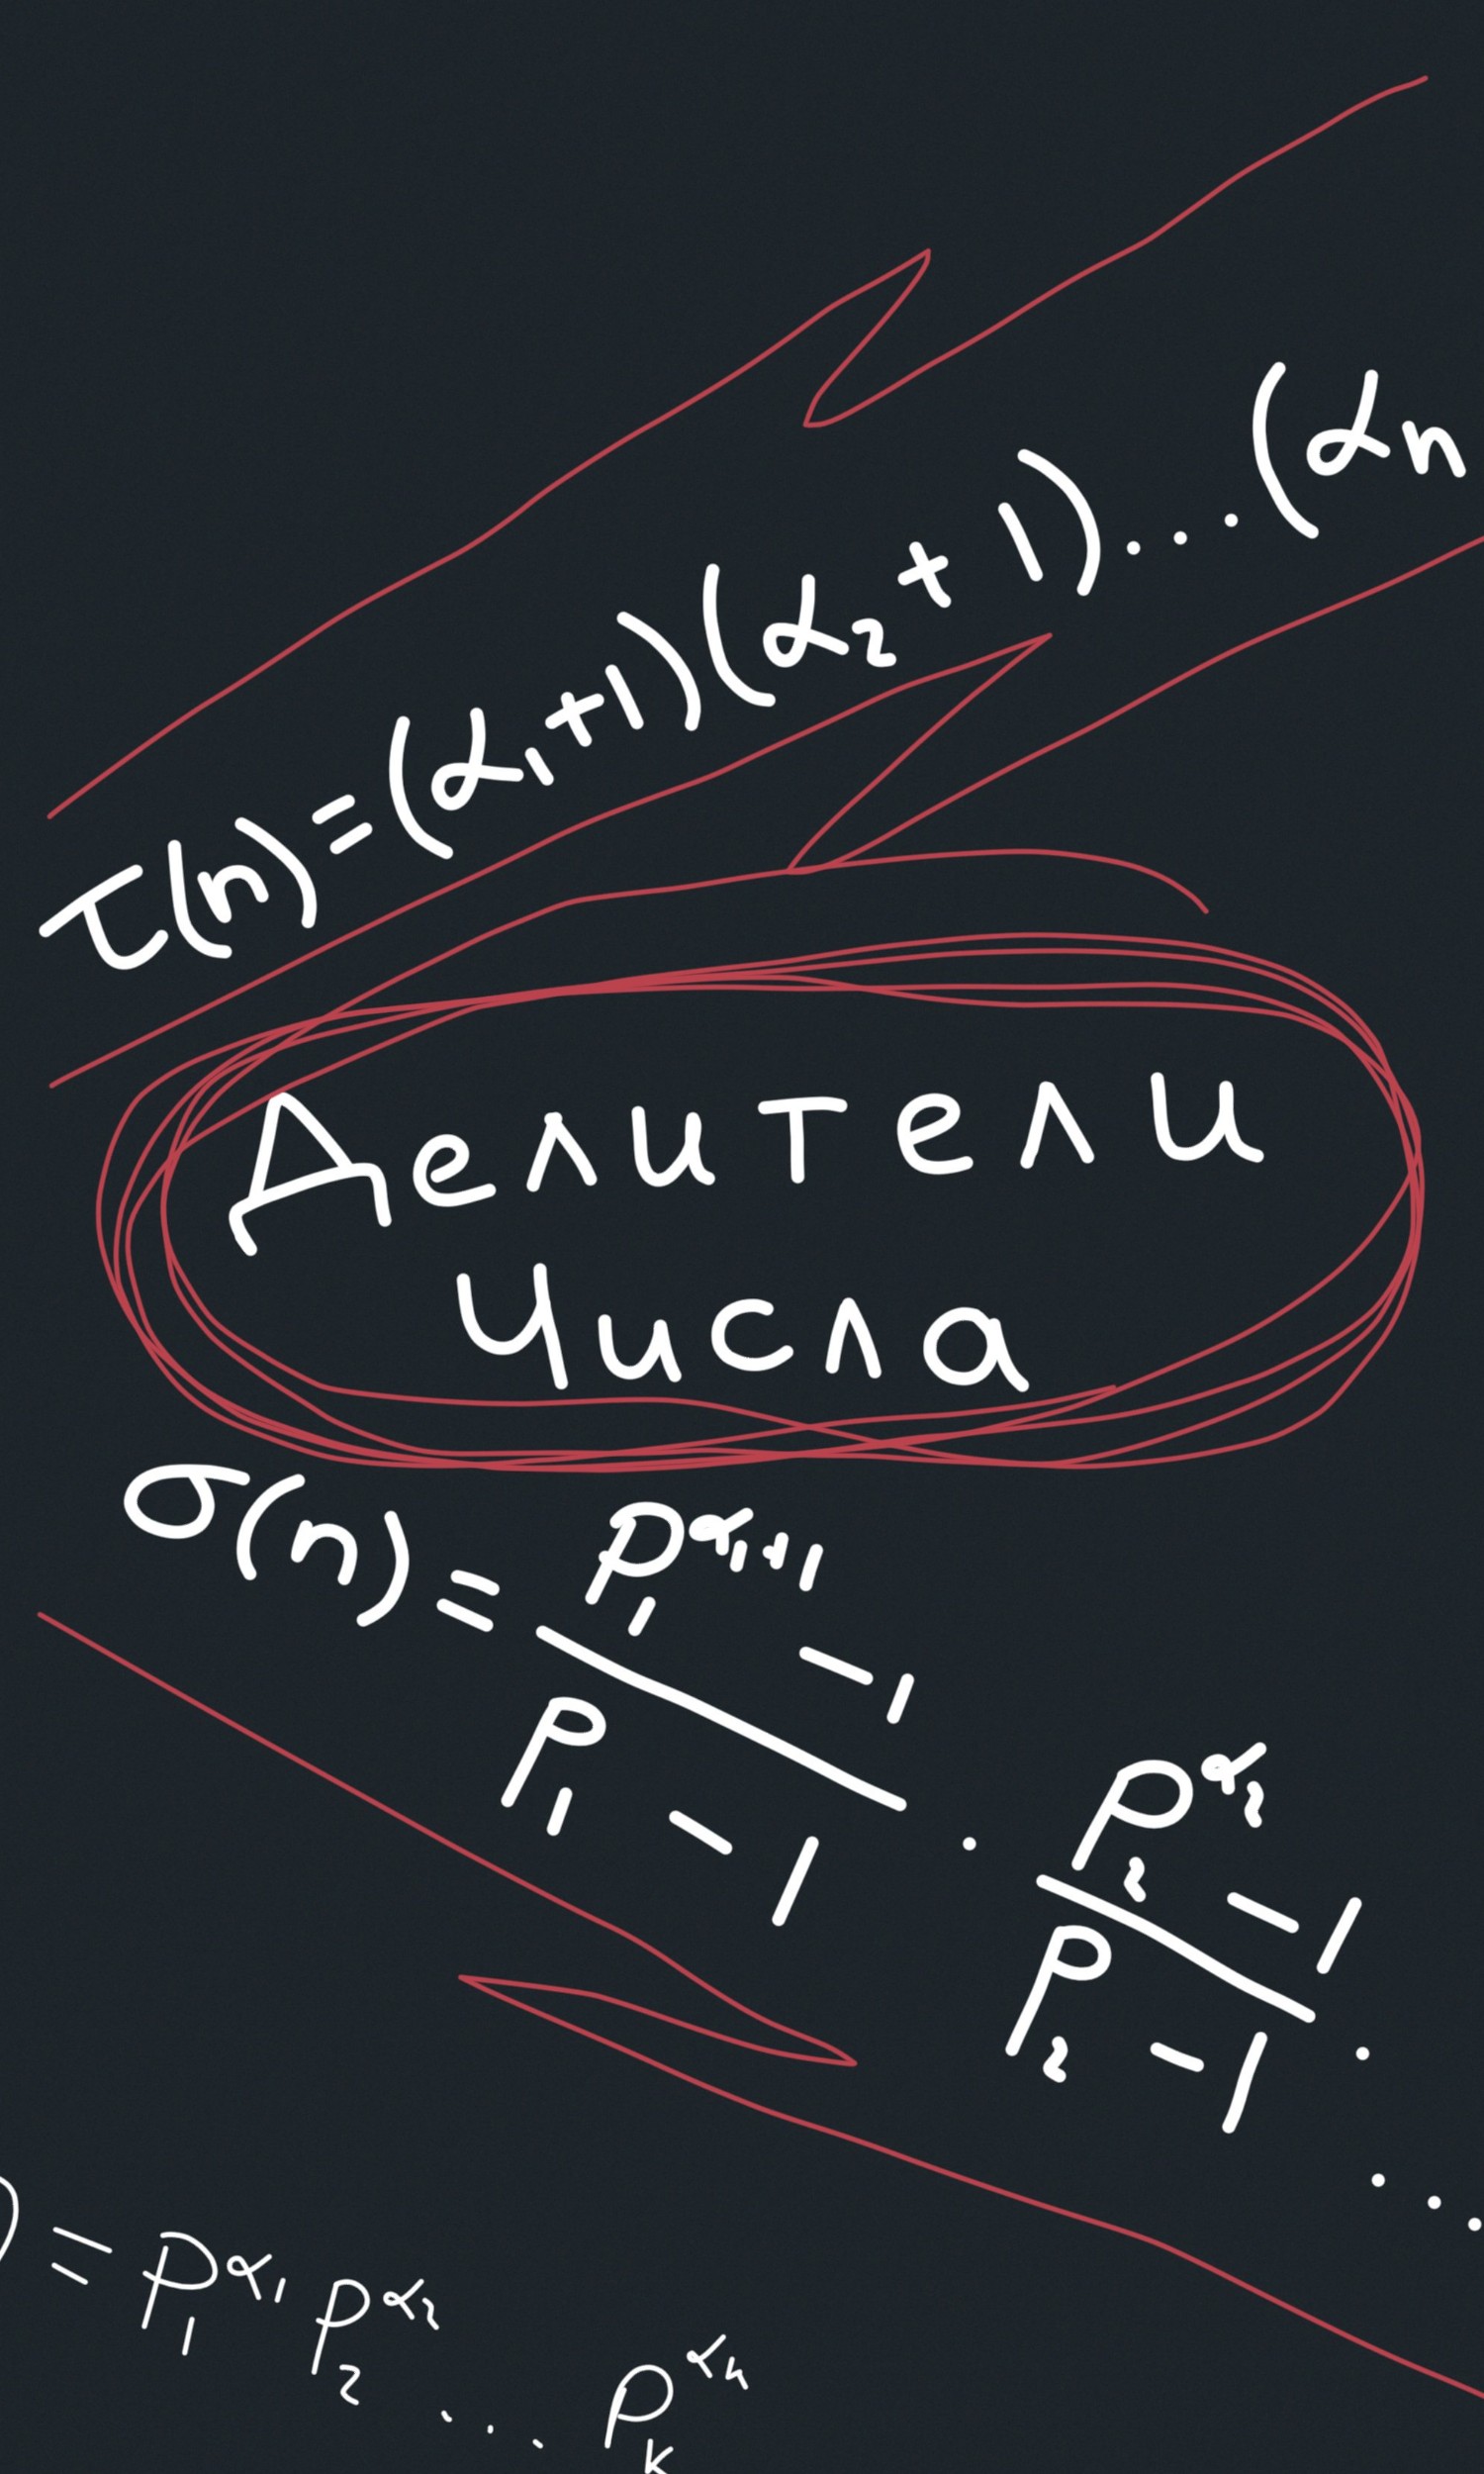 τ(n)=(α₁+1)(α₂+1)...(αn
Делители
Числа
σ(n) = (p₁^(α₁+1) − 1)/(p₁ − 1) · (p₂^(α₂) − 1)/(p₂ − 1) · ...
) = p₁^(α₁) p₂^(α₂) ... pₖ^(α